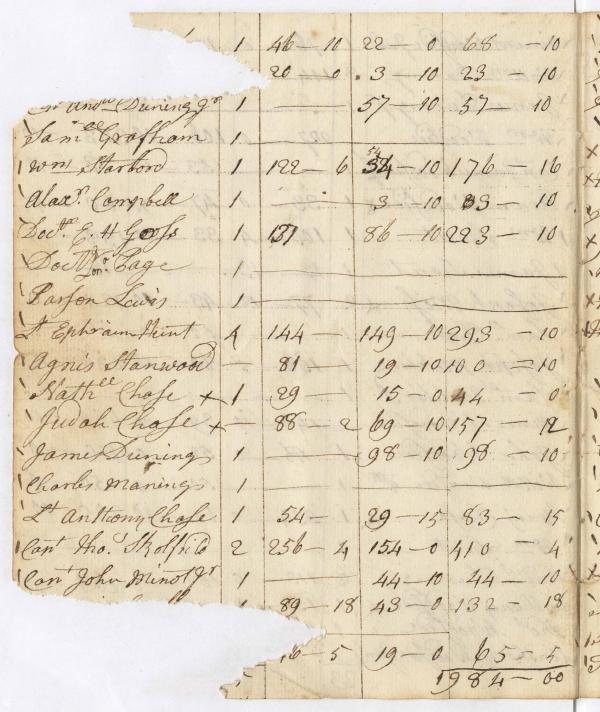 1 46 — 10 22 — 0 68 — 10
20 0 3 — 10 23 — 10
Duning Jr 1 — 57 — 10 57 10
Samll Grafham 1 —
Wm Starbord 1 122 — 6 54 34 — 10 176 — 16
Alaxr Campbell 1 — 3 — 10 33 — 10
Doctr E. H Goss 1 137 86 — 10 223 — 10
Doctr Jonn Page 1 —
Parson Lewis 1 —
Lt Ephraim Hunt 4 144 — 149 — 10 293 — 10
Agnis Stanwood — 81 — 19 — 10 100 = 10
Nathll Chase + 1 29 — 15 — 0 44 — 0
Judah Chase + — 88 — 2 69 — 10 157 — 12
James Duning 1 — 98 — 10 98 — 10
Charles Manings 1 —
Lt Anthony Chase 1 54 — 29 — 15 83 — 15
Capt Thos Skolfild 2 256 — 4 154 — 0 410 — 4
Capt John Minot Jr 1 — 44 — 10 44 — 10
89 — 18 43 — 0 132 — 18
16 — 5 19 — 0 65 — 5
1984 — 00